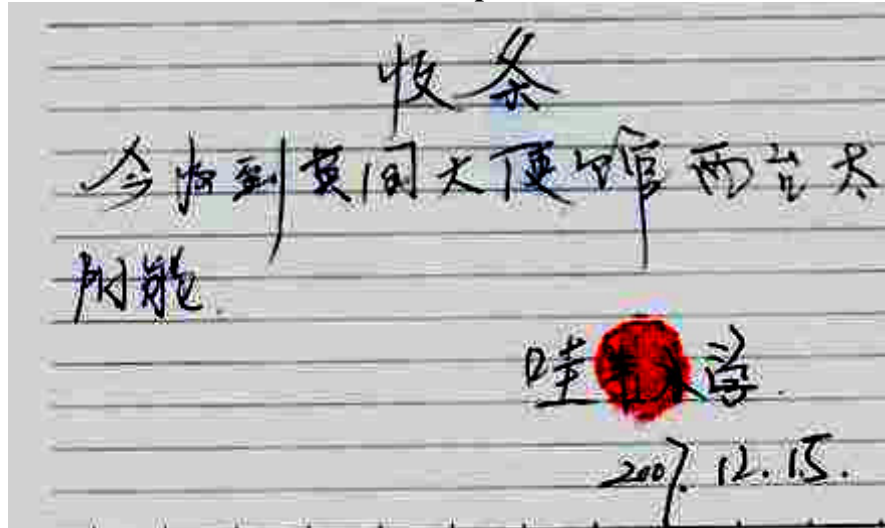 收条
今收到英国大使馆两台太
阳能.
哇 学.
2007.12.15.